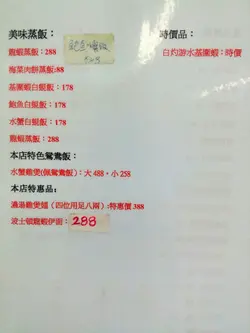 美味蒸飯：
龍蝦蒸飯：288
梅菜肉餅蒸飯:88
基圍蝦白飯：178
鮑魚白飯：178
水蟹白飯：178
龍蝦蒸飯：288
本店特色鴛鴦飯：
水蟹雞煲(佩鴛鴦飯)：大 488，小 258
本店特惠品：
邊爐雞煲麵（四位用足八兩）:特惠價 388
波士頓龍蝦伊面：288
時價品：
白灼游水基圍蝦：時價